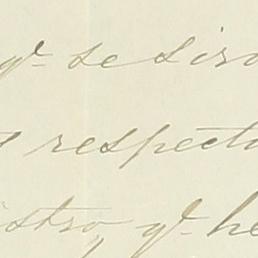 qe. se siro
respecto
istro, qe. he